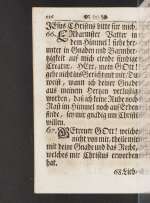 JEsus Christus bitte für mich.
66. Erbarmster Vatter in
dem Himmel! siehe her-
unter in Gnaden und Barmher-
tzigkeit auf mich elende
Creatur. HErr, mein GOtt!
gehe nicht ins Gericht mit mir. Du
weist, daß ich deine Gnade
aus meinem Hertzen
worden, daß ich keine Ruhe noch
Rast im Himmel noch auf Erden
finde, sey mir gnädig um Christi
willen.
67. Getreuer GOtt! weiche
nicht von mir, theile mir
die Gnade und das Recht,
welches mir Christus erworben
hat.
68. Lieb-